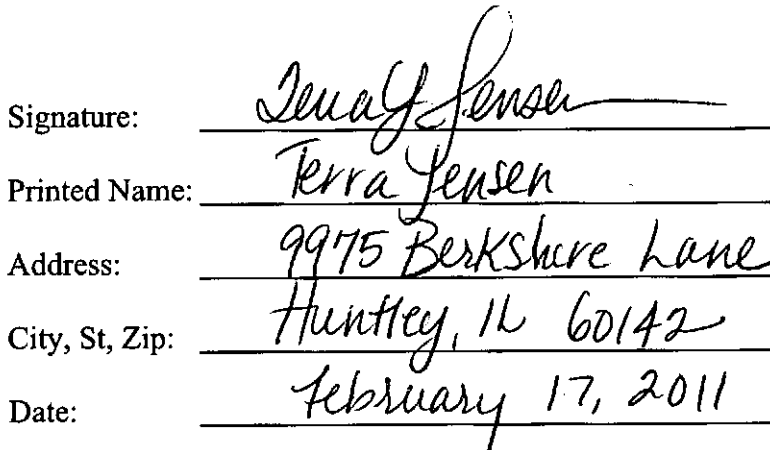 Signature: Terra Y Jensen
Printed Name: Terra Jensen
Address: 9975 Berkshire Lane
City, St, Zip: Huntley, IL 60142
Date: February 17, 2011